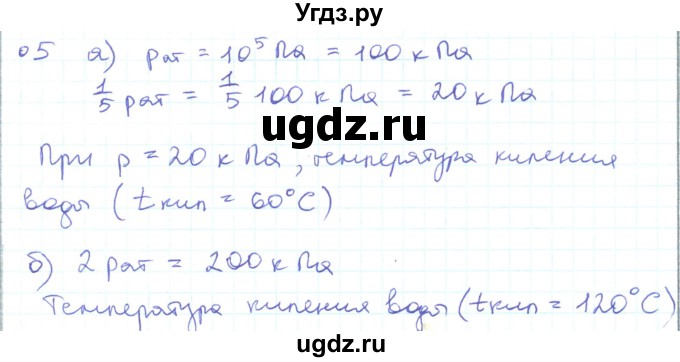 Угдз.ру
05 а) pат = 10⁵ Па = 100 кПа
1/5 pат = 1/5 100 кПа = 20 кПа
ugdz.ru
При p = 20 кПа, температура кипения
воды (tкип = 60°C)
ugdz.ru
б) 2 pат = 200 кПа
Температура кипения воды (tкип = 120°C)
ugdz.ru